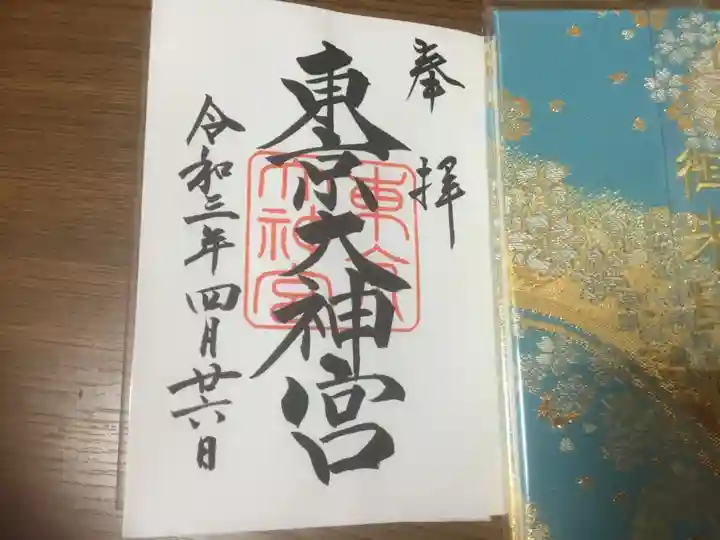 奉拝
東京大神宮
東京大神宮
令和三年四月廿六日